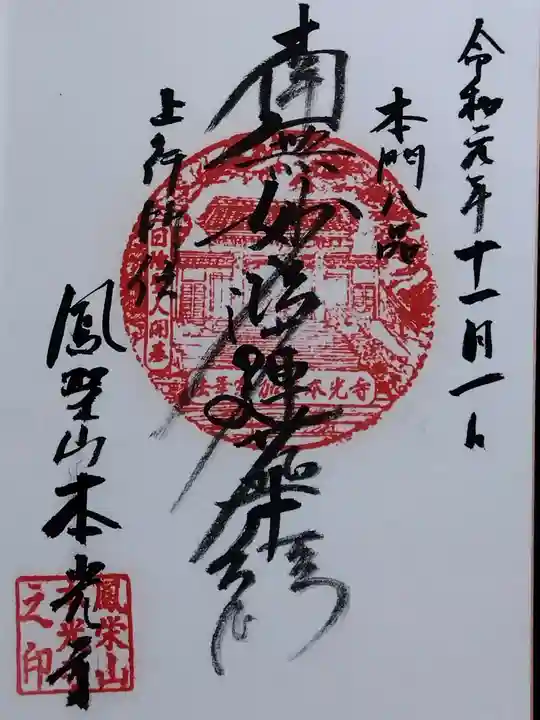 令和元年十一月一日
本門八品
南無妙法蓮華経
上行所伝
鳳聖山本光寺
本光寺
鳳栄山
本光寺
之印